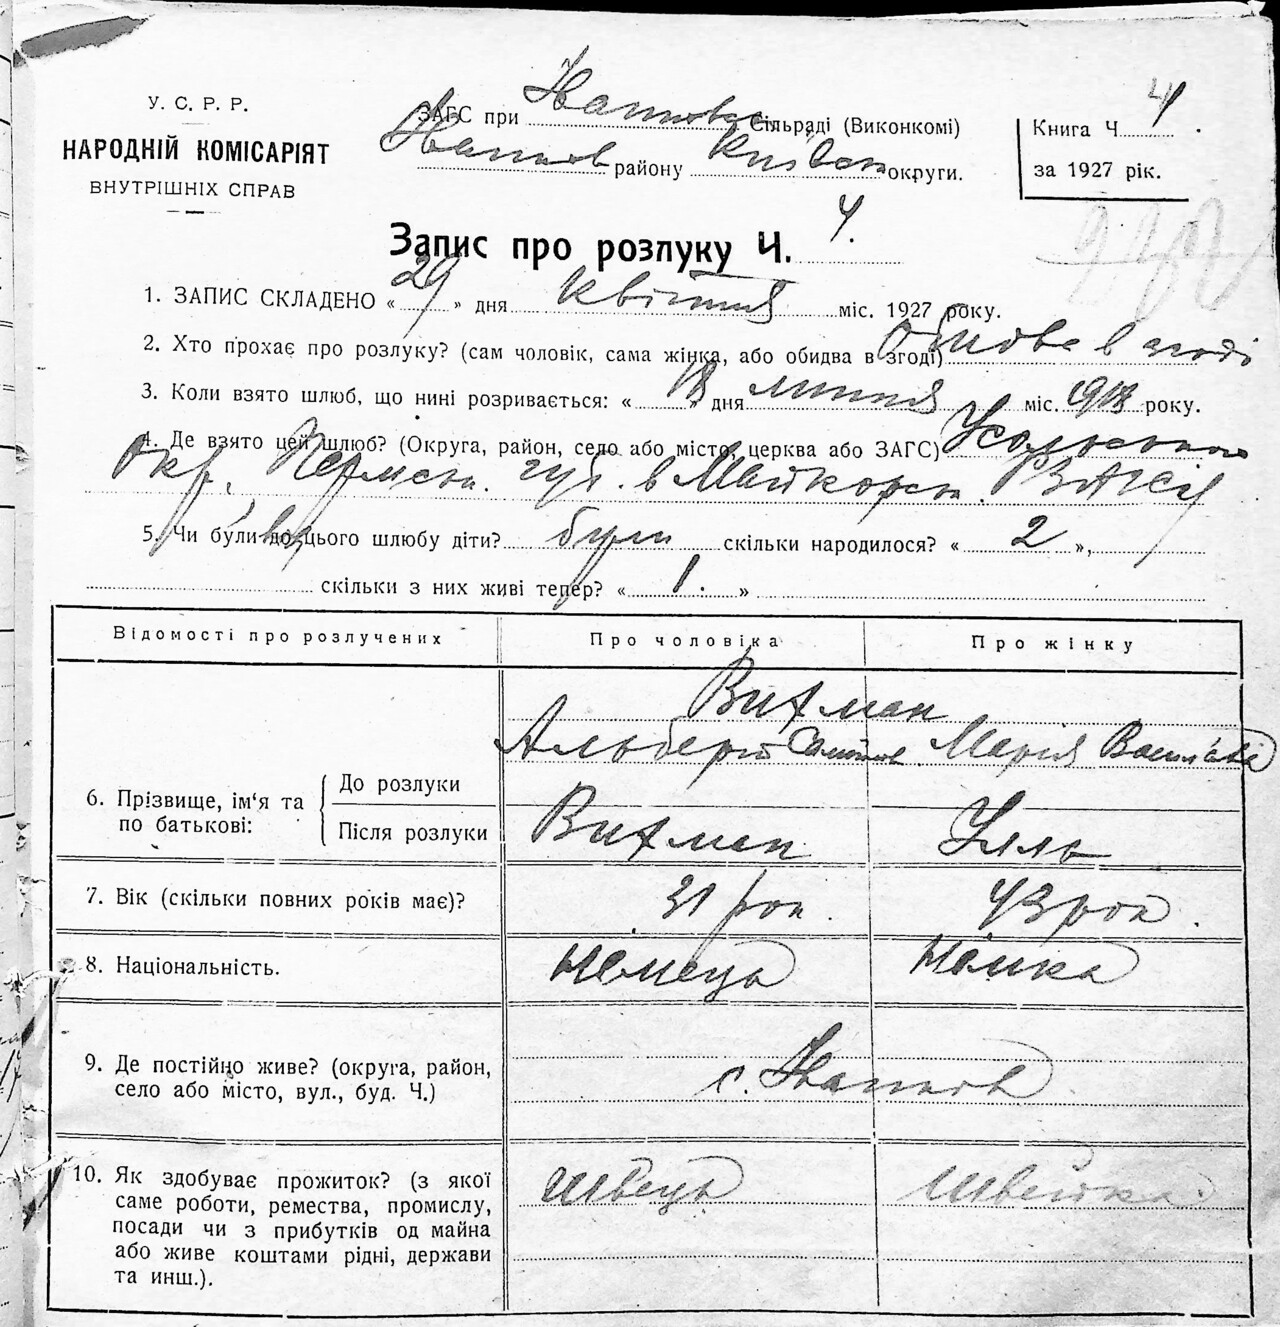 У. С. Р. Р.
НАРОДНІЙ КОМІСАРІЯТ
ВНУТРІШНІХ СПРАВ
ЗАГС при Сільраді (Виконкомі)
району Київськ округи.
Книга Ч. 4.
за 1927 рік.
Запис про розлуку Ч. 4.
1. ЗАПИС СКЛАДЕНО « 29 » дня квітня міс. 1927 року.
2. Хто прохає про розлуку? (сам чоловік, сама жінка, або обидва в згоді) обидва в згоді
3. Коли взято шлюб, що нині розривається: « 18 » дня липня міс. 1918 року.
4. Де взято цей шлюб? (Округа, район, село або місто, церква або ЗАГС) Усольського
окр, Пермськ. губ. в Майкорск. ЗАГСі
5. Чи були до цього шлюбу діти? були скільки народилося? « 2 »,
скільки з них живі тепер? « 1. »
Відомості про розлучених Про чоловіка Про жінку
Вихман
Альберт Марія Васильєвна
6. Прізвище, ім'я та по батькові: До розлуки
Після розлуки Вихман Улль
7. Вік (скільки повних років має)? 31 рок. 43 рок.
8. Національність. Немець Немка
9. Де постійно живе? (округа, район,
село або місто, вул., буд. Ч.) с.
10. Як здобуває прожиток? (з якої Швець Швейка.
саме роботи, ремества, промислу,
посади чи з прибутків од майна
або живе коштами рідні, держави
та инш.).